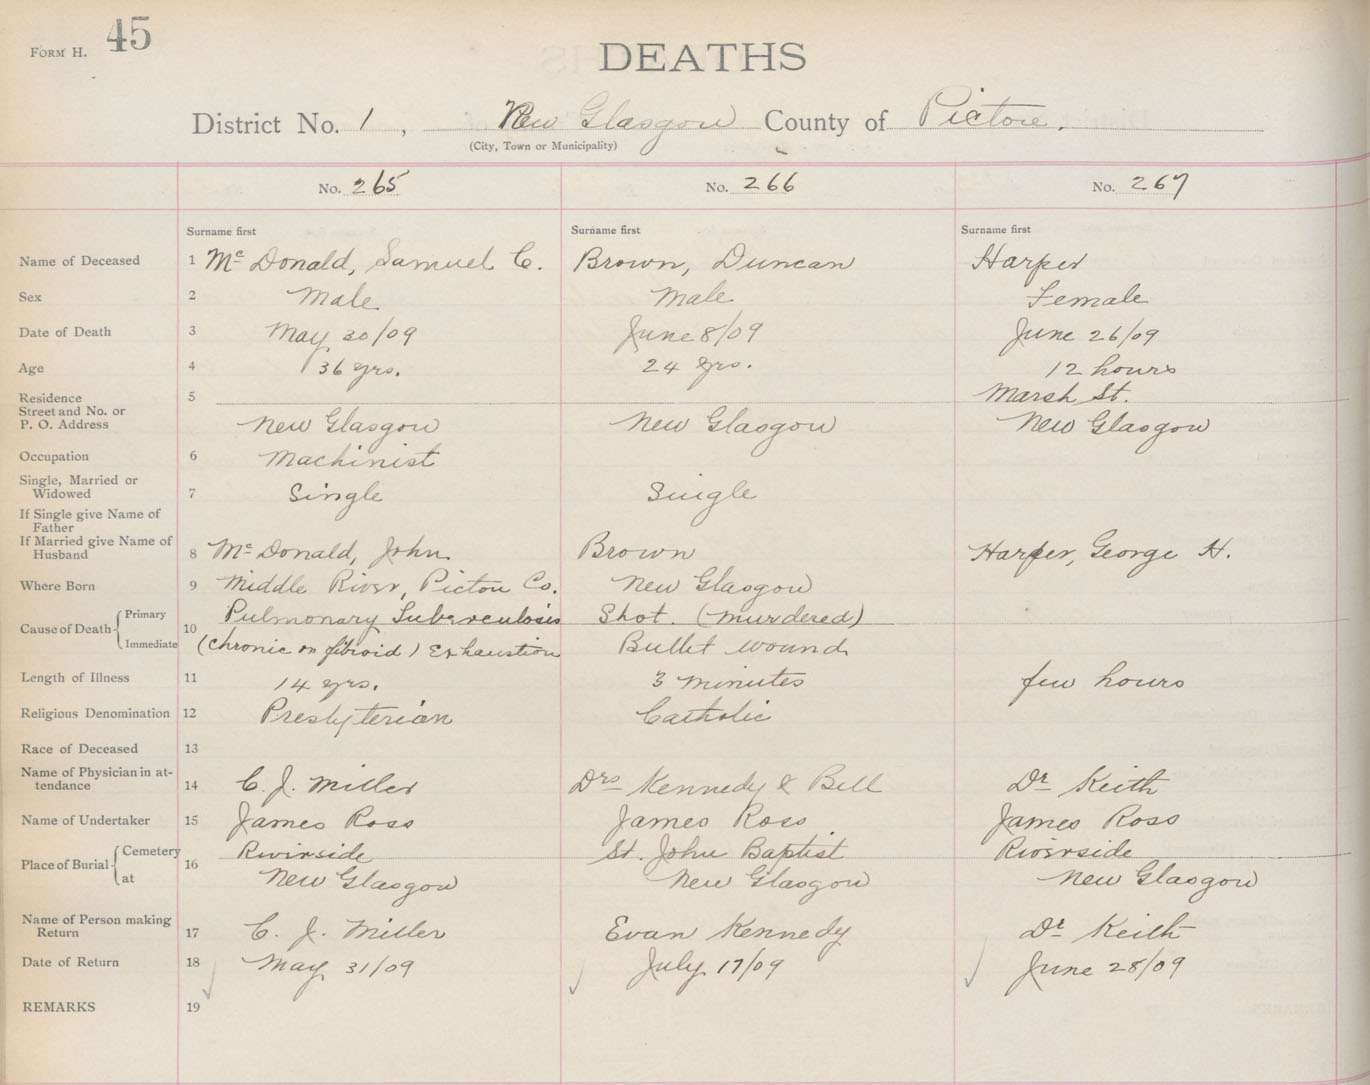 FORM H. 45
DEATHS
District No. 1, New Glasgow County of Pictou.
(City, Town or Municipality)
No. 265 No. 266 No. 267
Surname first Surname first Surname first
Name of Deceased 1 Mc Donald, Samuel C. Brown, Duncan Harper
Sex 2 Male Male Female
Date of Death 3 May 30/09 June 8/09 June 26/09
Age 4 36 yrs. 24 yrs. 12 hours
Residence 5 Marsh St.
Street and No. or
P. O. Address New Glasgow New Glasgow New Glasgow
Occupation 6 Machinist
Single, Married or
Widowed 7 Single Single
If Single give Name of
Father
If Married give Name of
Husband 8 Mc Donald, John Brown Harper, George H.
Where Born 9 Middle River, Pictou Co. New Glasgow
Primary Pulmonary Tuberculosis Shot. (murdered)
Cause of Death 10
Immediate (chronic or fibroid) Exhaustion Bullet wound
Length of Illness 11 14 yrs. 3 minutes few hours
Religious Denomination 12 Presbyterian Catholic
Race of Deceased 13
Name of Physician in at-
tendance 14 C. J. Miller Drs Kennedy & Bell Dr Keith
Name of Undertaker 15 James Ross James Ross James Ross
Cemetery Riverside St. John Baptist Riverside
Place of Burial 16
at New Glasgow New Glasgow New Glasgow
Name of Person making
Return 17 C. J. Miller Evan Kennedy Dr Keith
Date of Return 18 May 31/09 July 17/09 June 28/09
REMARKS 19